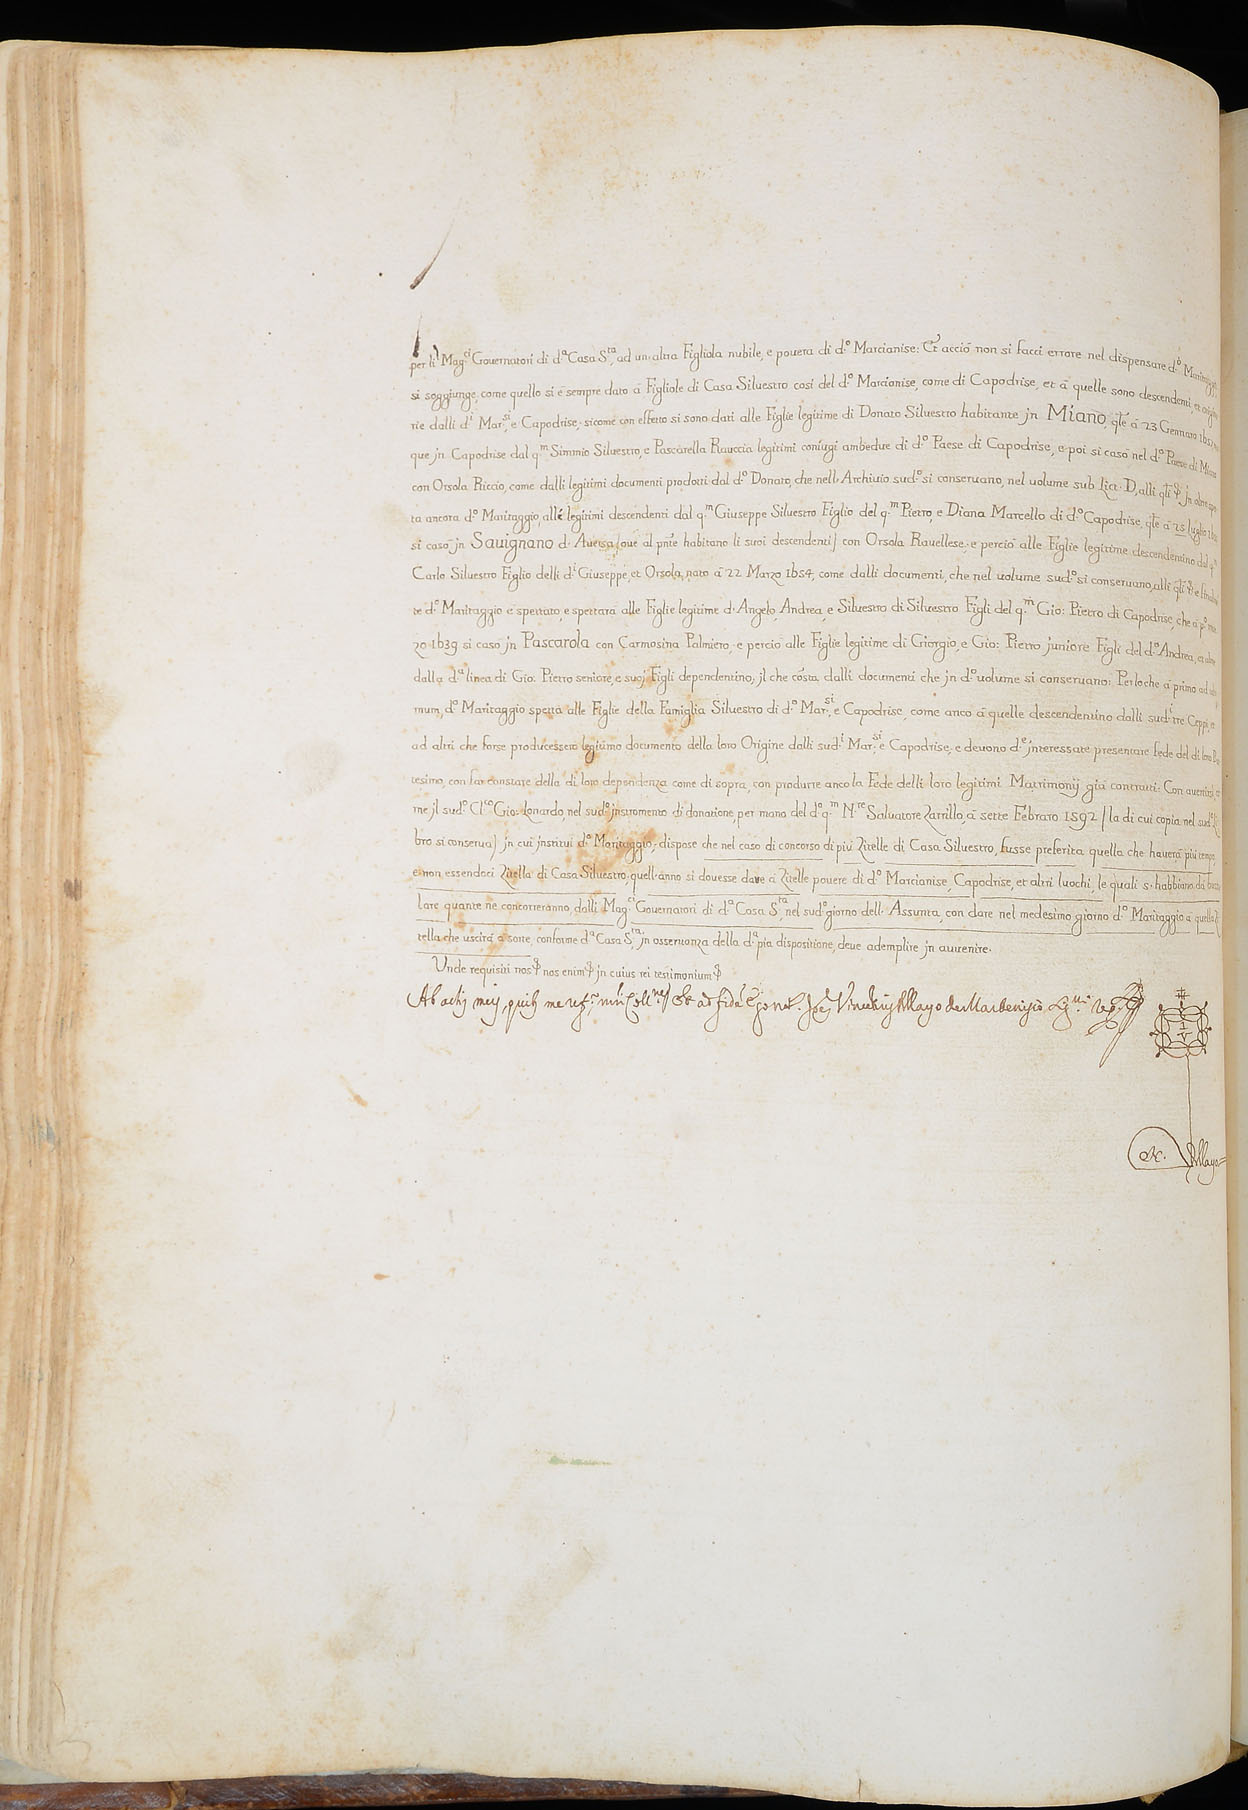 per li Mag.ci Gouernatori di d.a Casa S.ta, ad un'altra Figliola nubile, e pouera di d.o Marcianise: Et acciò non si facci errore nel dispensare d.o Maritaggio,
si soggiunge, come quello si è sempre dato à Figliole di Casa Siluestro così del d.o Marcianise, come di Capodrise, et à quelle sono descendenti, et origina
rie dalli d.i Mar.si, e Capodrise, sicome con effetto si sono dati alle Figlie legitime di Donato Siluestro habitante jn Miano, q̄le à 23 Gennaro
que jn Capodrise dal q.m Simmio Siluestro, e Pascarella Rauccia legitimi coniugi ambedue di d.o Paese di Capodrise, e poi si casò nel d.o Paese di Miano
con Orsola Riccio, come dalli legitimi documenti prodotti dal d.o Donato, che nell'Archiuio sud.o si conseruano, nel uolume sub Lict. D, alli
ta ancora d.o Maritaggio, alle legitimi descendenti dal q.m Giuseppe Siluestro Figlio del q.m Pietro, e Diana Marcello di d.o Capodrise, q̄le à 25 luglio
si casò jn Sauignano d'Auersa (oue al pn̄te habitano li suoi descendenti) con Orsola Rauellese, e perciò alle Figlie legitime descendentino dal q.m
Carlo Siluestro Figlio delli d.i Giuseppe, et Orsola, nato à 22 Marzo 1654, come dalli documenti, che nel uolume sud.o si conseruano, alli
te d.o Maritaggio è spettato, e spettarà alle Figlie legitime d'Angelo, Andrea, e Siluestro di Siluestro Figli del q.m Gio: Pietro di Capodrise, che à p.o mar
zo 1639 si casò jn Pascarola con Carmosina Palmiero, e perciò alle Figlie legitime di Giorgio, e Gio: Pietro juniore Figli del d.o Andrea, et
dalla d.a linea di Gio: Pietro seniore, e suoj Figli dependentino; jl che costa dalli documenti che jn d.o uolume si conseruano: Perloche à primo ad
mum, d.o Maritaggio spetta alle Figlie della Famiglia Siluestro di d.o Mar.si, e Capodrise, come anco à quelle descendentino dalli sud.i tre Ceppi, e
ad altri che forse producessero legitimo documento della loro Origine dalli sud.i Mar.si e Capodrise; e deuono d.e jnteressate presentare fede del di loro Bat
tesimo, con far constare della di loro dependenza come di sopra, con produrre anco la Fede delli loro legitimi Matrimonij già contratti: Con auertirsi, co
me jl sud.o Cl.co Gio: Lonardo nel sud.o jnstromento di donatione, per mano del d.o q.m N.re Saluatore Zarrillo, à sette Febraro 1592 (la di cui copia nel sud.o Li
bro si conserua) jn cui jnstituì d.o Maritaggio, dispose che nel caso di concorso di più Zitelle di Casa Siluestro, fusse preferita quella che hauerà più tempo,
e non essendoci Zitella di Casa Siluestro, quell'anno si douesse dare à Zitelle pouere di d.o Marcianise, Capodrise, et altri luochi, le quali s'habbiano da busso
lare quante ne concorreranno, dalli Mag.ci Gouernatori di d.a Casa S.ta, nel sud.o giorno dell'Assunta, con dare nel medesimo giorno d.o Maritaggio à quella Zi
tella che uscirà à sorte, conforme d.a Casa S.ta, jn osseruanza della d.a pia dispositione, deue adempire jn auuenire.
Unde requisiti nos nos enim jn cuius rei testimonium
Ab actis meis
&c. Allayo